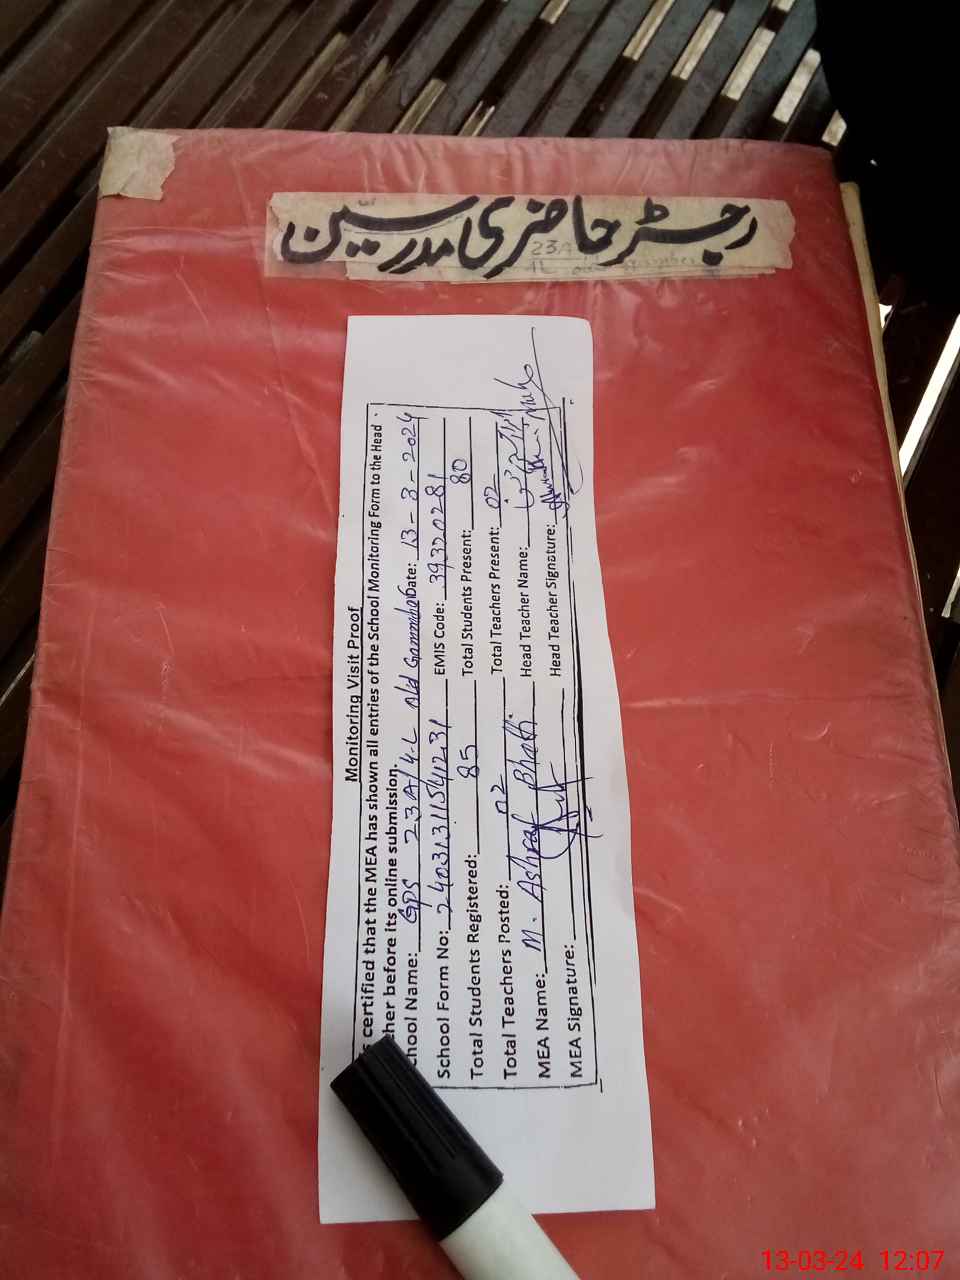 رجسٹر حاضری مدرسین
23A
Monitoring Visit Proof
certified that the MEA has shown all entries of the School Monitoring Form to the Head
her before its online submission.
chool Name: GPS 23A/4-L old Date: 13-3-2024
School Form No: EMIS Code: 39320281
Total Students Registered: 85 Total Students Present: 80
Total Teachers Posted: 02 Total Teachers Present: 02
MEA Name: M. Ashraf Bhatti Head Teacher Name:
MEA Signature: Head Teacher Signature:
13-03-24 12:07